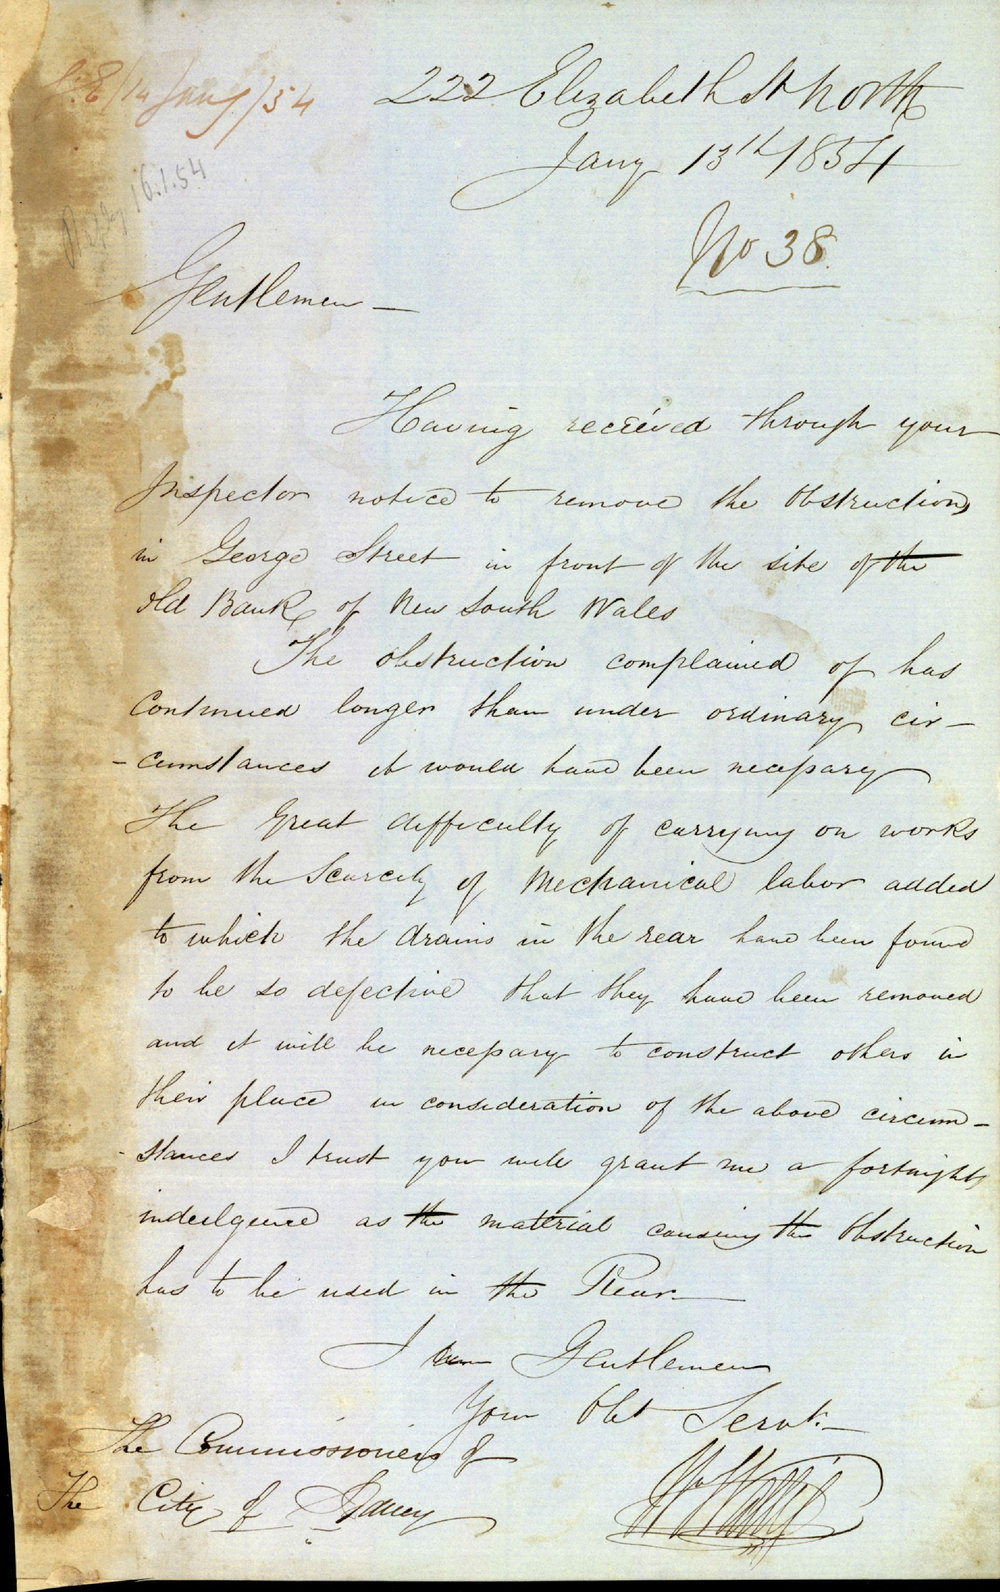 14 Jany/54
222 Elizabeth St North
Jany 13th 1854
Reply 16.1.54
No 38
Gentlemen —
Having received through your
Inspector notice to remove the Obstruction
in George Street in front of the site of the
old Bank of New South Wales
The obstruction complained of has
Continued longer than under ordinary cir-
-cumstances it would have been necessary
The Great difficulty of carrying on works
from the Scarcity of Mechanical labor added
to which the drains in the rear have been found
to be so defective that they have been removed
and it will be necessary to construct others in
their place in consideration of the above circum-
-stances I trust you will grant me a fortnights
indulgence as the material causing the Obstruction
has to be used in the Rear —
I am Gentlemen
Your Obt Servt —
The Commissioners of
The City of Sydney